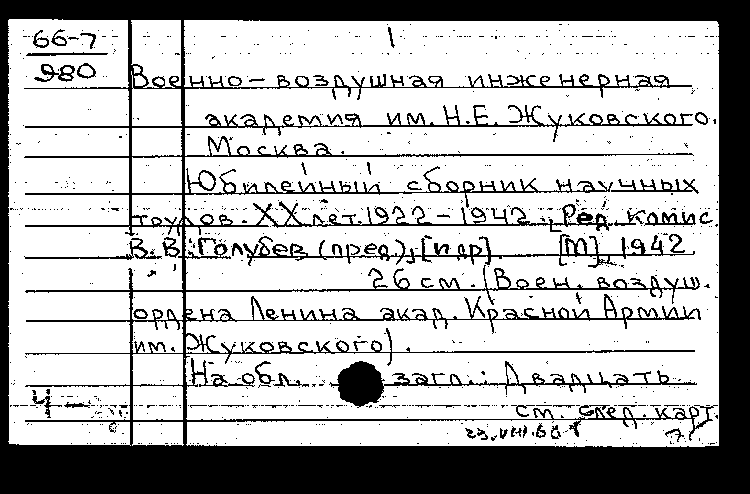 66-7
980
1
Военно-воздушная инженерная
академия им. Н.Е. Жуковского.
Москва.
Юбилейный сборник научных
трудов. XX лет. 1922-1942. [Ред. комис.
В. В. Голубев (пред.), [и др]. [М], 1942
26 см. (Воен. воздуш.
ордена Ленина акад. Красной Армии
им. Жуковского).
На обл. загл.: Двадцать
Ч-
см. след. карт.
23.VIII.66